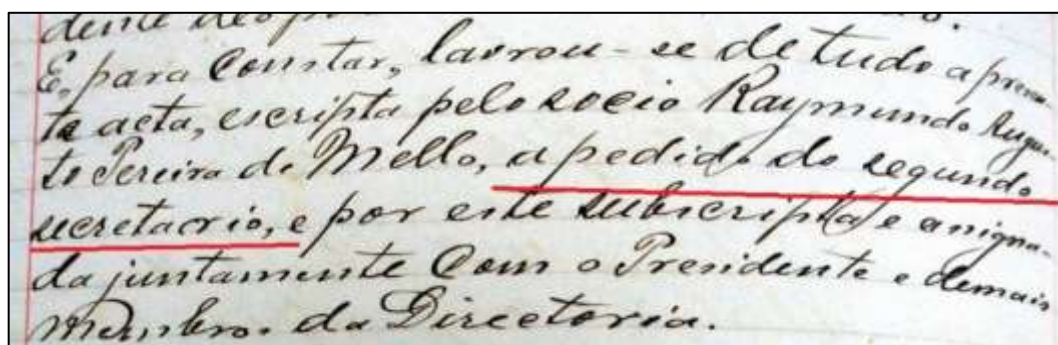 dente
E, para constar, lavrou-se de tudo a presen-
te acta, escripta pelo socio Raymundo Augus-
to Pereira de Mello, a pedido do segundo
secretario, e por este subscripta e assigna-
da juntamente com o Presidente e demais
membros da Directoria.